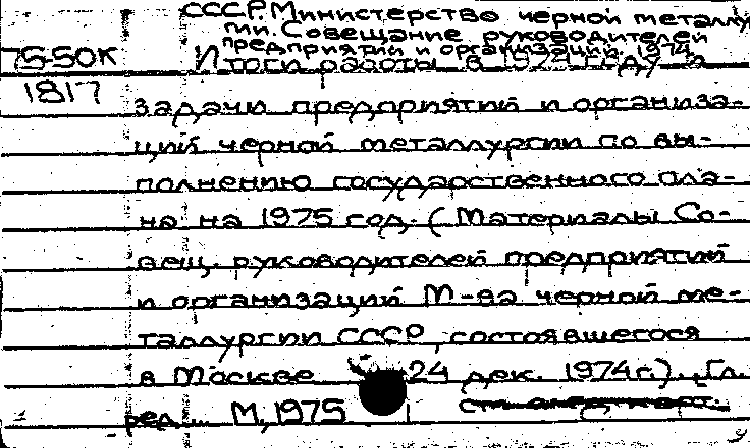 СССР. Министерство черной металлур-
гии. Совещание руководителей
предприятий и организаций. 1974.
75-50К
Итоги работы в 1974 году и
1817
задачи предприятий и организа-
ций черной металлургии по вы-
полнению государственного пла-
на на 1975 год. (Материалы Со-
вещ. руководителей предприятий
и организаций М-ва черной ме-
таллургии СССР, состоявшегося
в Москве 24 дек. 1974г.). Гл.
ред... М, 1975